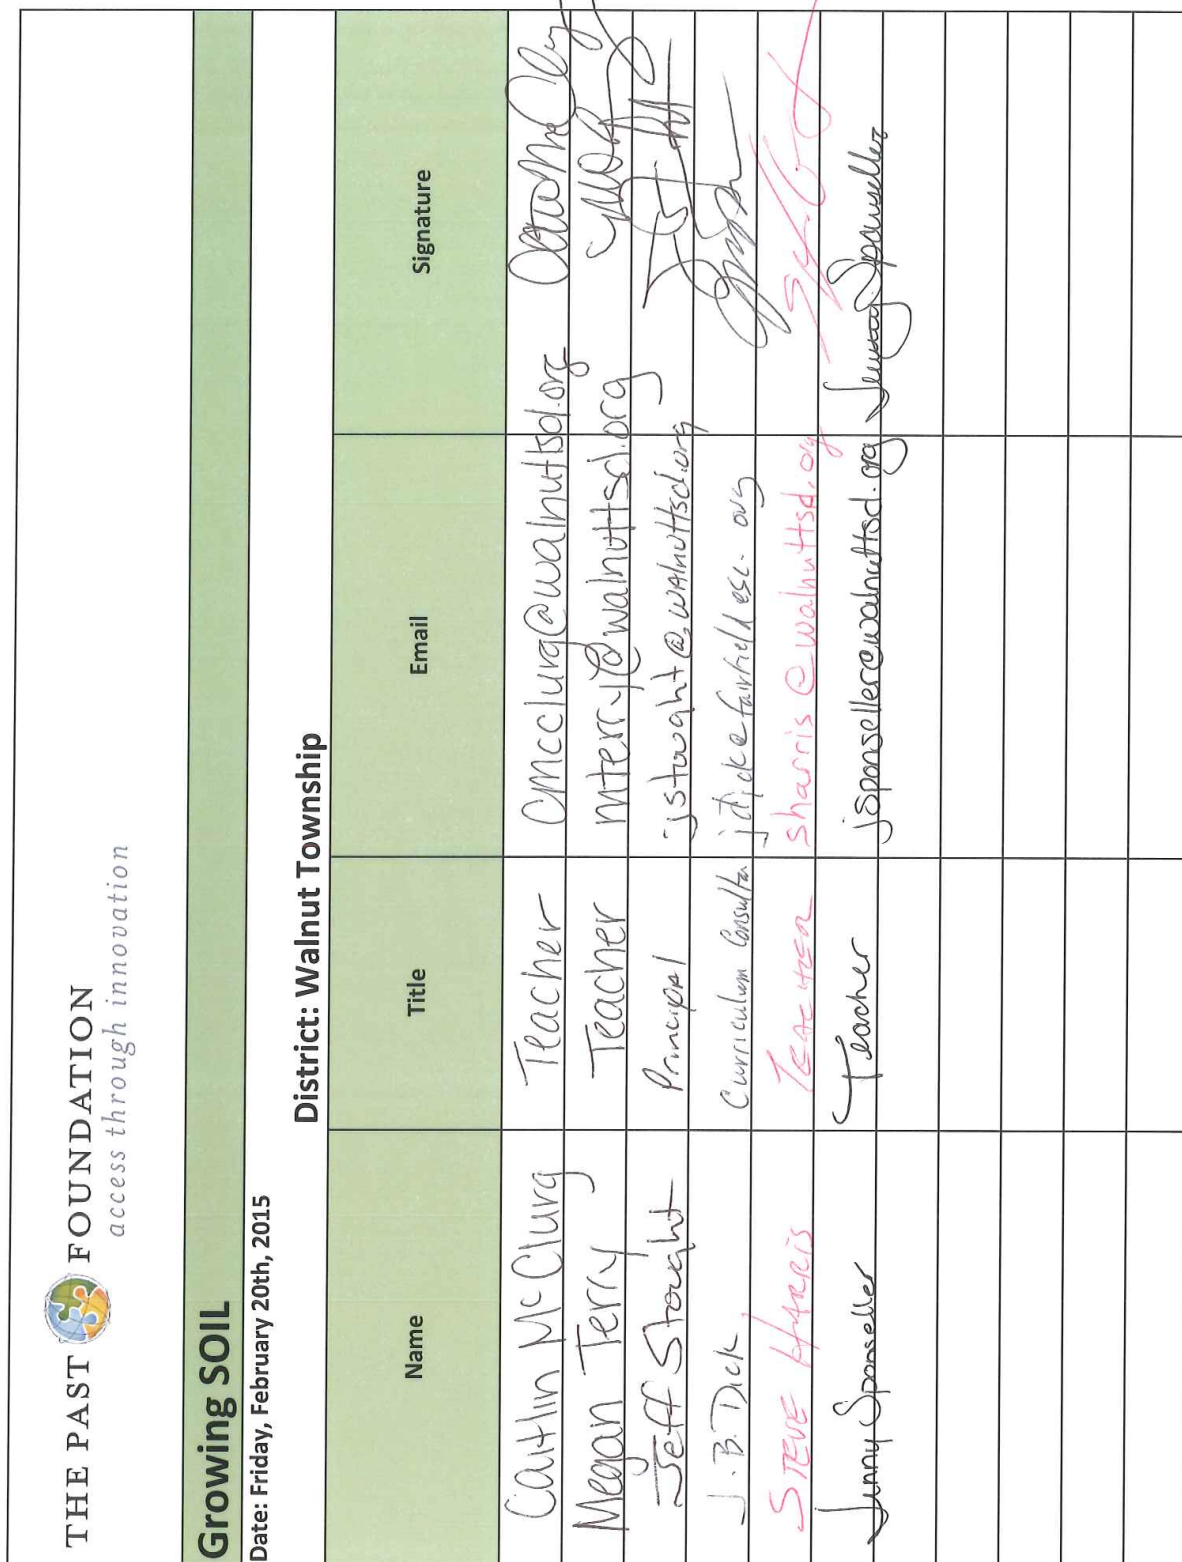 THE PAST FOUNDATION
access through innovation
Growing SOIL
Date: Friday, February 20th, 2015
District: Walnut Township
Name Title Email Signature
Caitlin McClurg Teacher cmcclurg@walnuttsd.org
Megan Terry Teacher mterry@walnuttsd.org
Jeff Stought Principal jstought@walnuttsd.org
J.B. Dick Curriculum Consultan jdick@fairfieldesc.org
STEVE HARRIS TEACHER sharris@walnuttsd.org
Jenny Sponseller Teacher jsponseller@walnuttsd.org Jenny Sponseller